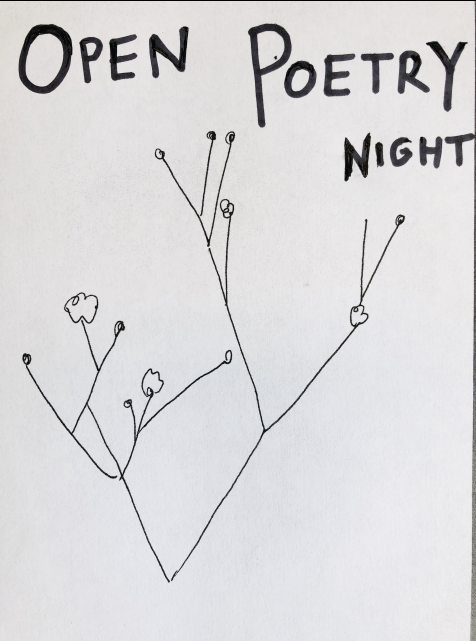 OPEN POETRY
NIGHT